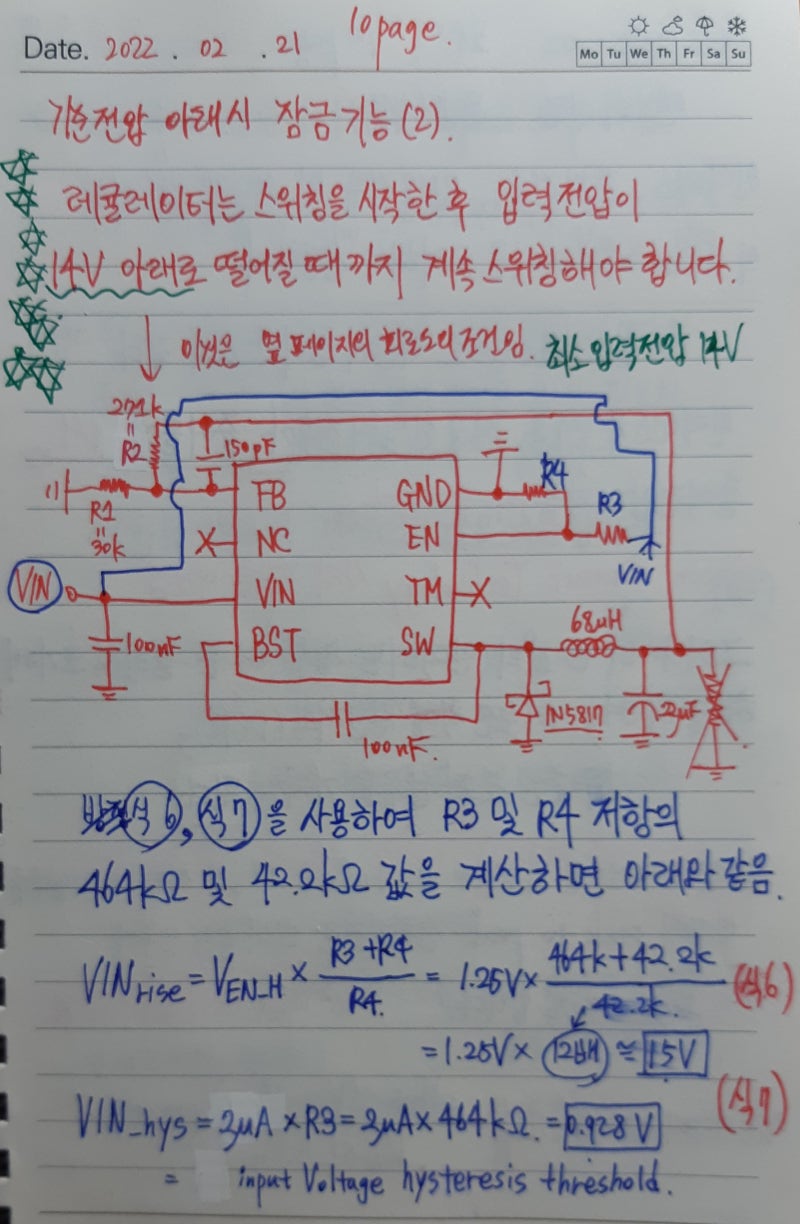 10page.
Date. 2022 . 02 . 21
Mo Tu We Th Fr Sa Su
기준전압 아래시 잠금기능(2).
레귤레이터는 스위칭을 시작한 후 입력전압이
14V 아래로 떨어질 때까지 계속 스위칭해야 합니다.
이것은 옆페이지의 회로도의 조건임. 최소입력전압 14V
271k
=
R2
150pF
R1
=
30k
FB
NC
VIN
BST
GND
EN
TM
SW
R4
R3
VIN
VIN
100nF
68uH
1N5817
22uF
100nF.
식6, 식7을 사용하여 R3 및 R4 저항의
464kΩ 및 42.2kΩ 값을 계산하면 아래와 같음.
VINrise = VEN_H × (R3+R4)/R4. = 1.25V × (464k+42.2k)/42.2k. (식6)
= 1.25V × 12배 ≅ 15V
VIN_hys = 2uA × R3 = 2uA × 464kΩ. = 0.928V (식7)
= input Voltage hysteresis threshold.